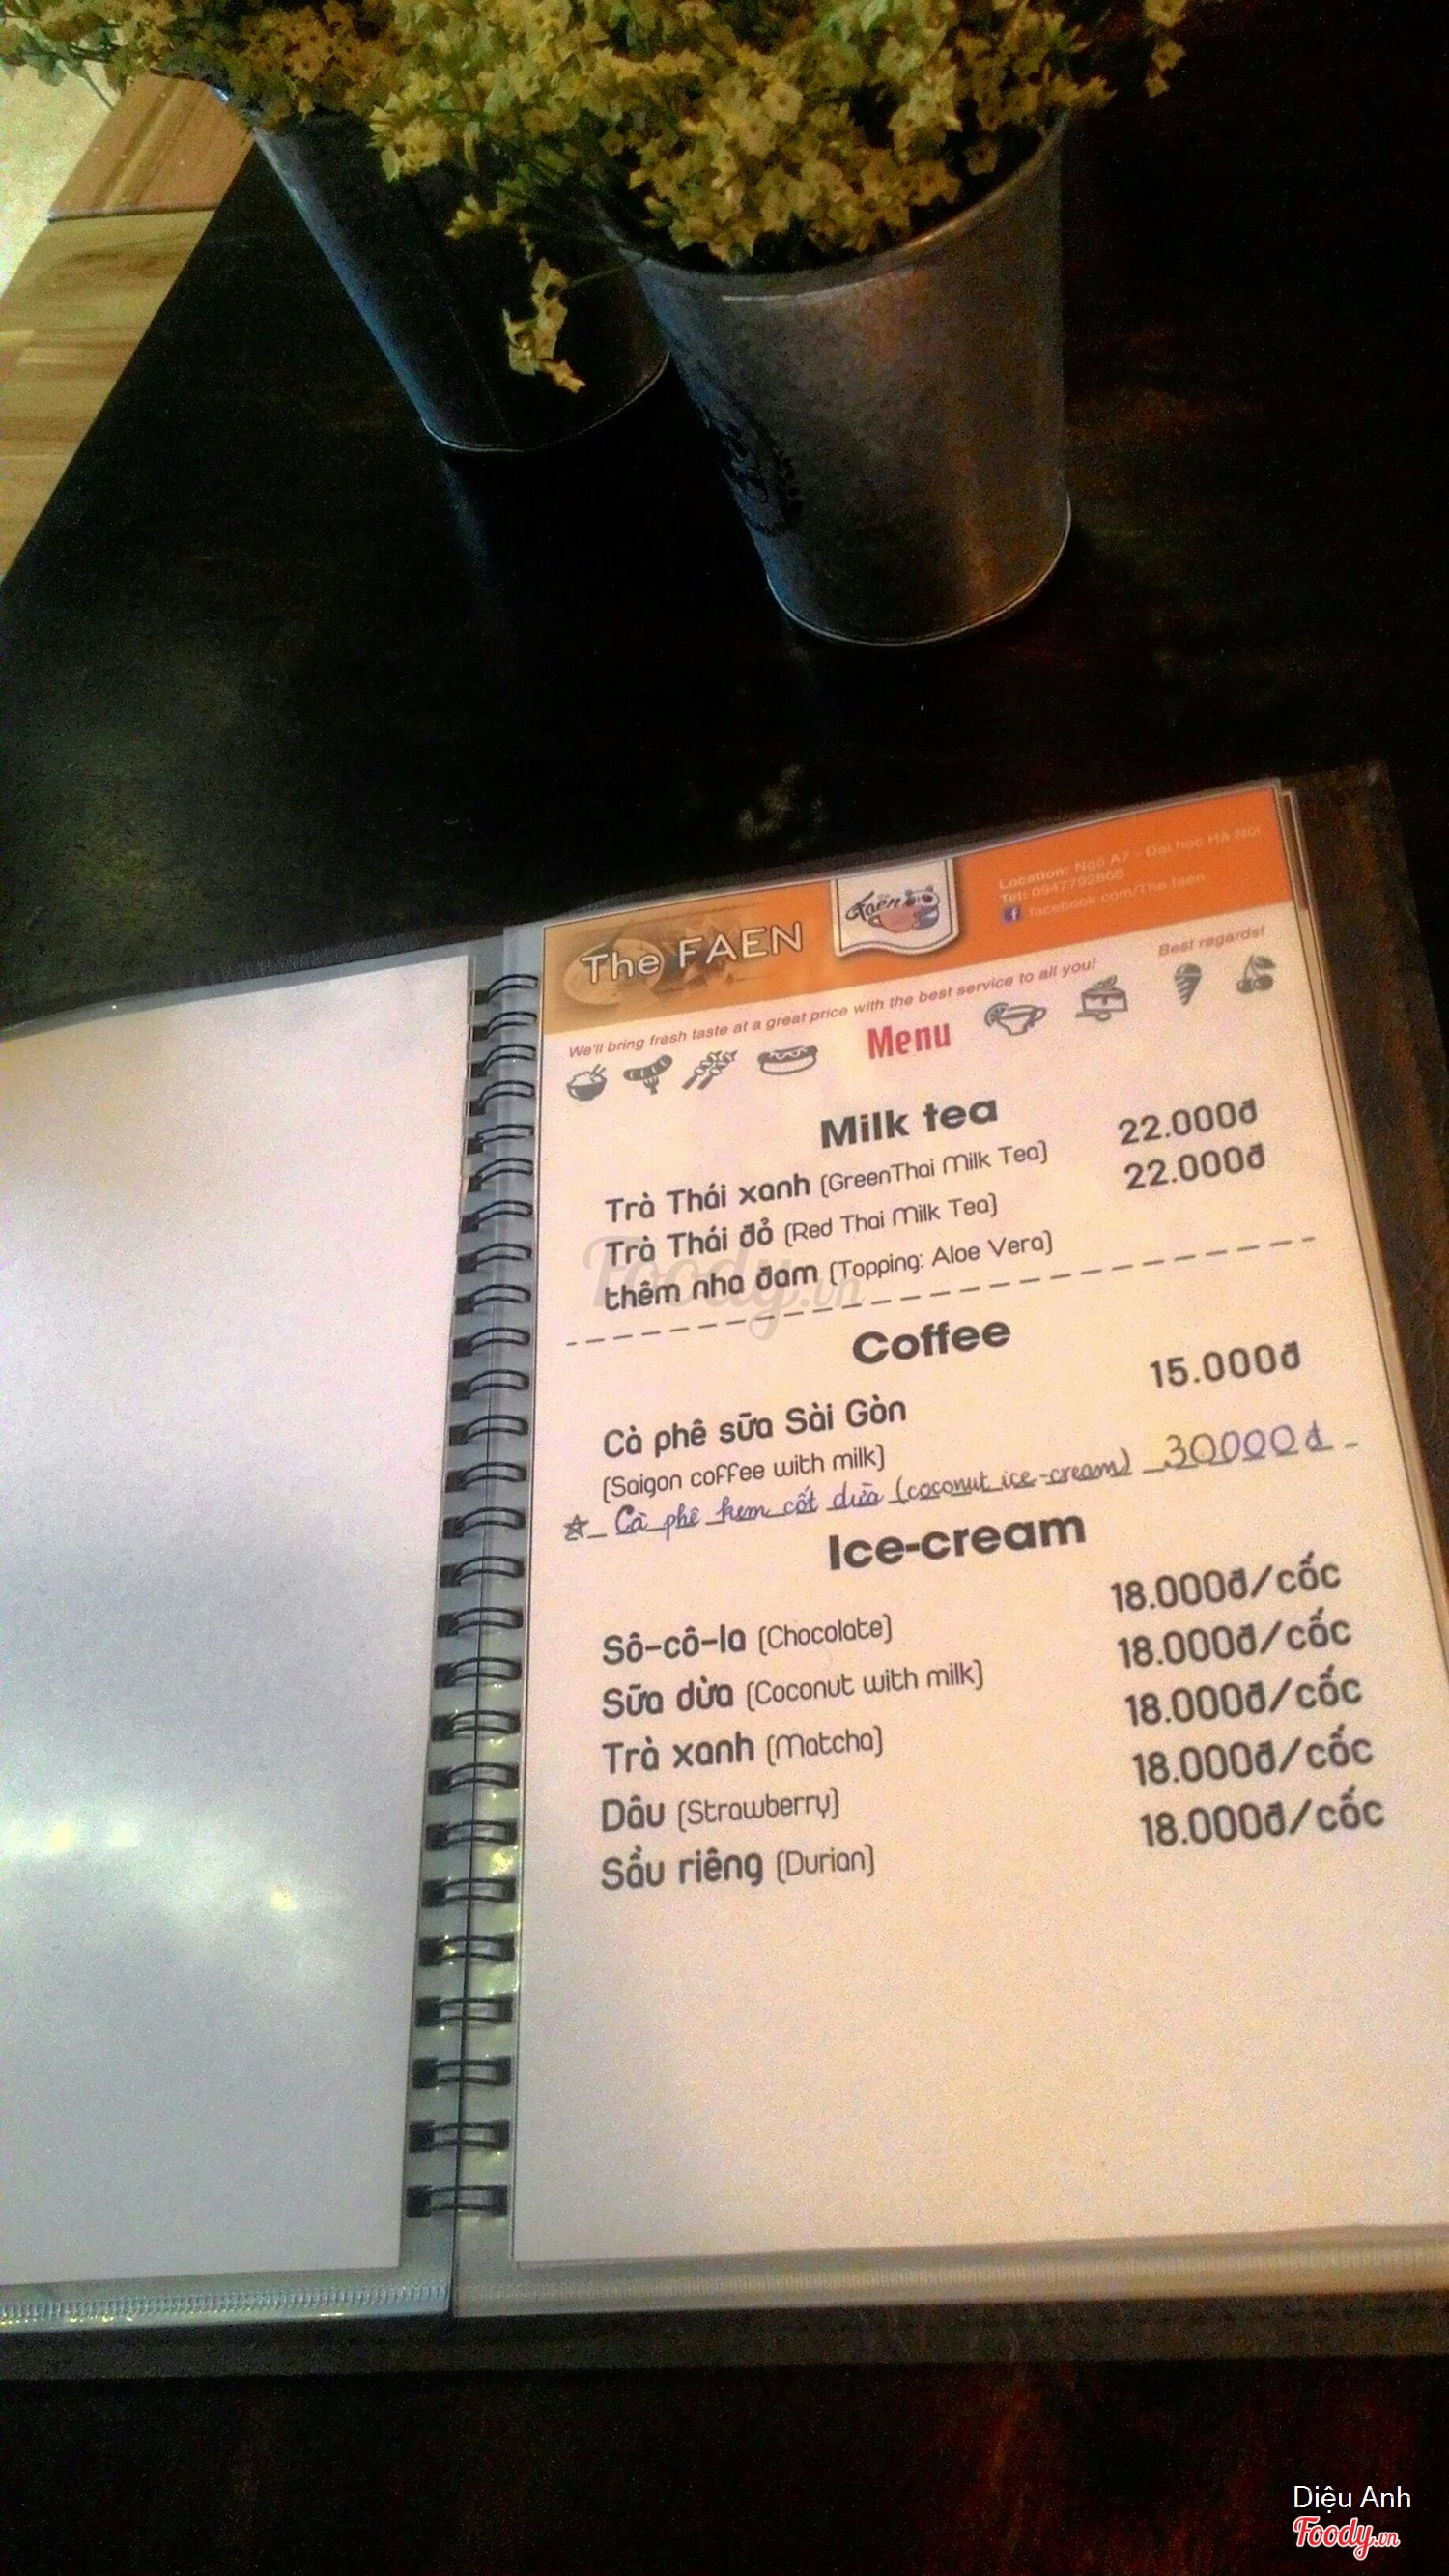 The FAEN
Faën
Location: Ngõ A7 - Đại học Hà Nội
Tel: 0947792868
facebook.com/The.faen
We'll bring fresh taste at a great price with the best service to all you!
Best regards!
Menu
Milk tea
Trà Thái xanh (GreenThai Milk Tea) 22.000đ
Trà Thái đỏ (Red Thai Milk Tea) 22.000đ
thêm nha đam (Topping: Aloe Vera)
Foody.vn
Coffee
Cà phê sữa Sài Gòn 15.000đ
(Saigon coffee with milk)
Cà phê kem cốt dừa (coconut ice-cream) 30000đ
Ice-cream
Sô-cô-la (Chocolate) 18.000đ/cốc
Sữa dừa (Coconut with milk) 18.000đ/cốc
Trà xanh (Matcha) 18.000đ/cốc
Dâu (Strawberry) 18.000đ/cốc
Sầu riêng (Durian) 18.000đ/cốc
Diệu Anh
Foody.vn